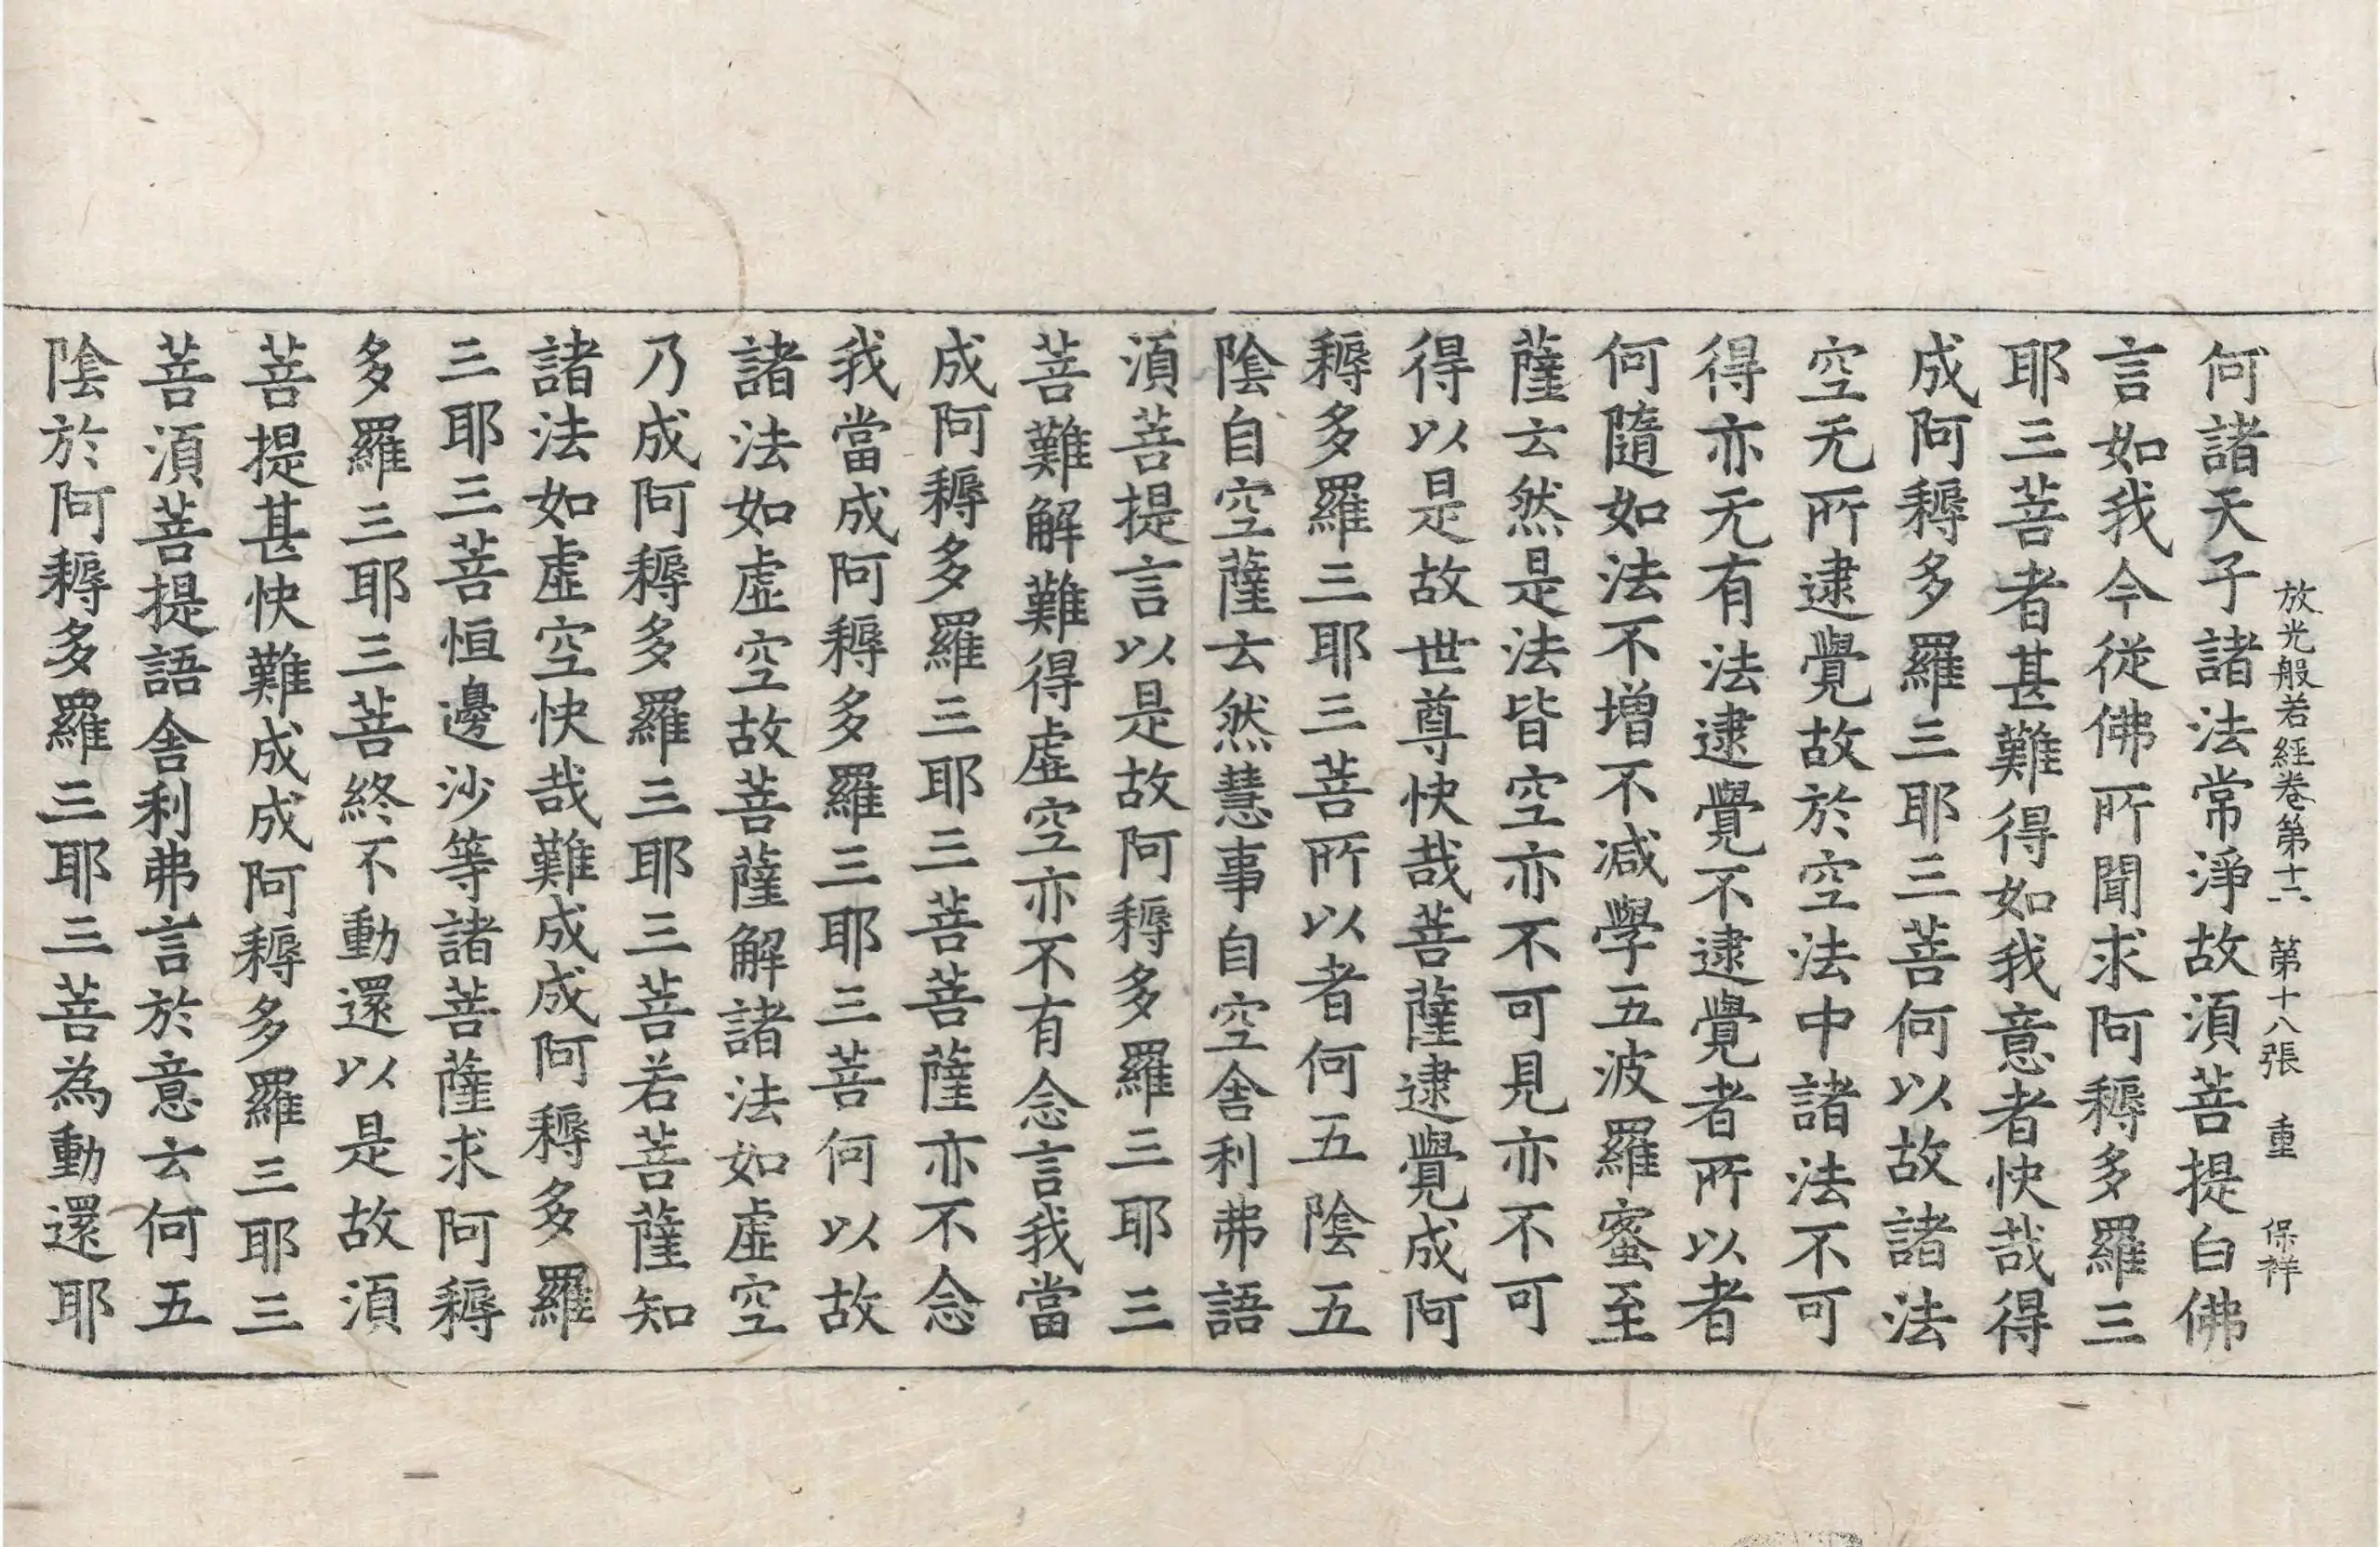 放光般若經卷第十六 第十八張 重 保祥
何諸天子諸法常淨故湏菩提白佛
言如我今從佛所聞求阿耨多羅三
耶三菩者甚難得如我意者快哉得
成阿耨多羅三耶三菩何以故諸法
空无所逮覺故於空法中諸法不可
得亦无有法逮覺不逮覺者所以者
何隨如法不增不减學五波羅蜜至
薩云然是法皆空亦不可見亦不可
得以是故世尊快哉菩薩逮覺成阿
耨多羅三耶三菩所以者何五陰五
陰自空薩云然慧事自空舍利弗語
湏菩提言以是故阿耨多羅三耶三
菩難解難得虛空亦不有念言我當
成阿耨多羅三耶三菩菩薩亦不念
我當成阿耨多羅三耶三菩何以故
諸法如虛空故菩薩解諸法如虛空
乃成阿耨多羅三耶三菩若菩薩知
諸法如虛空快哉難成成阿耨多羅
三耶三菩恒邊沙等諸菩薩求阿耨
多羅三耶三菩終不動還以是故湏
菩提甚快難成成阿耨多羅三耶三
菩湏菩提語舍利弗言於意云何五
陰於阿耨多羅三耶三菩為動還耶